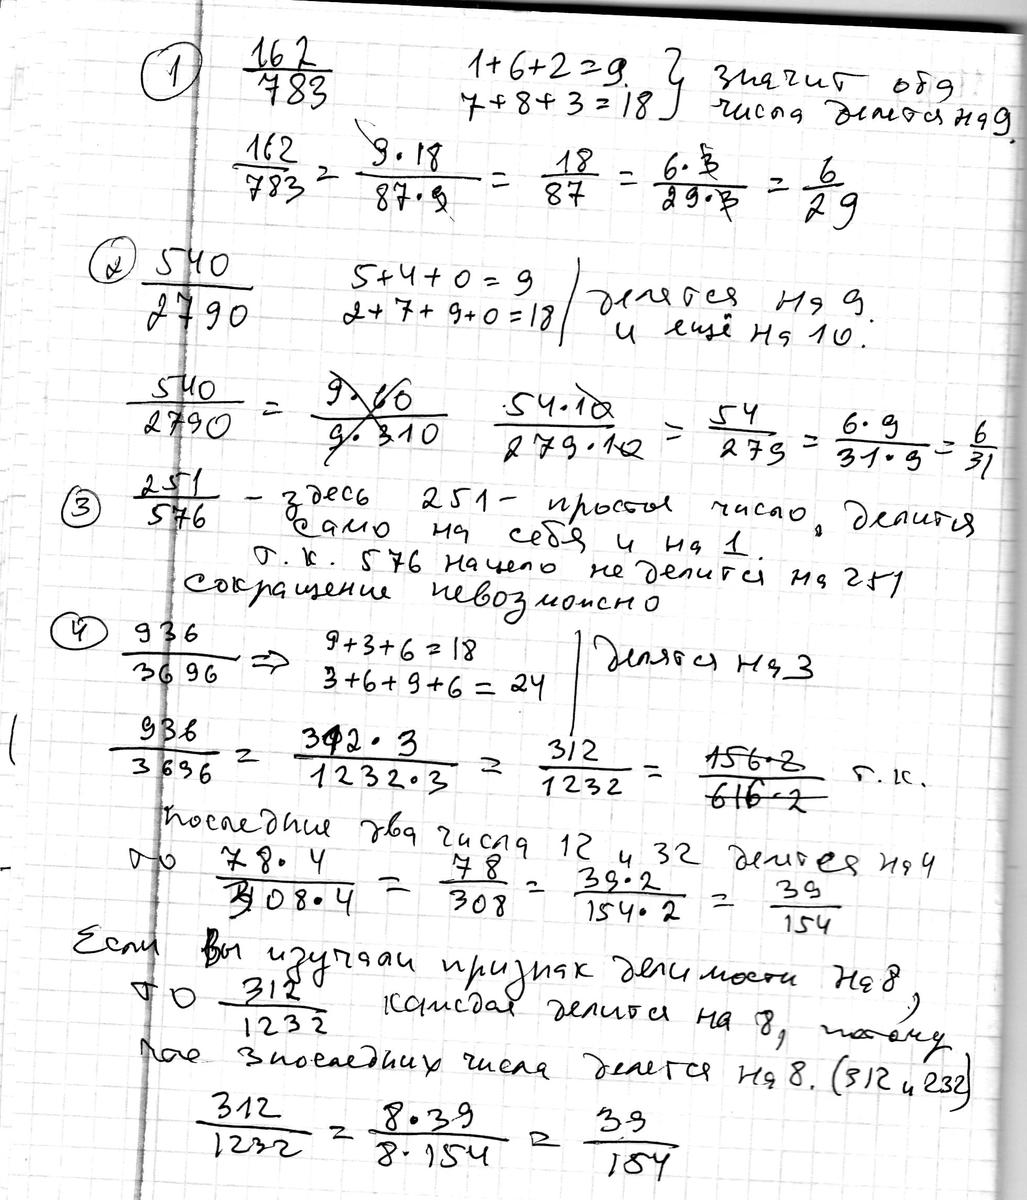 1 162/783 1+6+2=9 } значит оба
7+8+3=18 числа делится на 9.
162/783 = 9·18/87·9 = 18/87 = 6·3/29·3 = 6/29
2 540/2790 5+4+0=9 | делятся на 9.
2+7+9+0=18 и ещё на 10.
540/2790 = 9·60/9·310 54·10/279·10 = 54/279 = 6·9/31·9 = 6/31
3 251/576 – здесь 251 – простое число, делится
само на себя и на 1.
т.к. 576 нацело не делится на 251
сокращение невозможно
4 936/3696 => 9+3+6=18 | делятся на 3
3+6+9+6=24
936/3696 = 312·3/1232·3 = 312/1232 = 156·2/616·2 т.к.
последние два числа 12 и 32 делится на 4
то 78·4/308·4 = 78/308 = 39·2/154·2 = 39/154
Если Вы изучали признак делимости на 8,
то 312/1232 каждая делится на 8, потому
3 последних числа делется на 8. (312 и 232)
312/1232 = 8·39/8·154 = 39/154